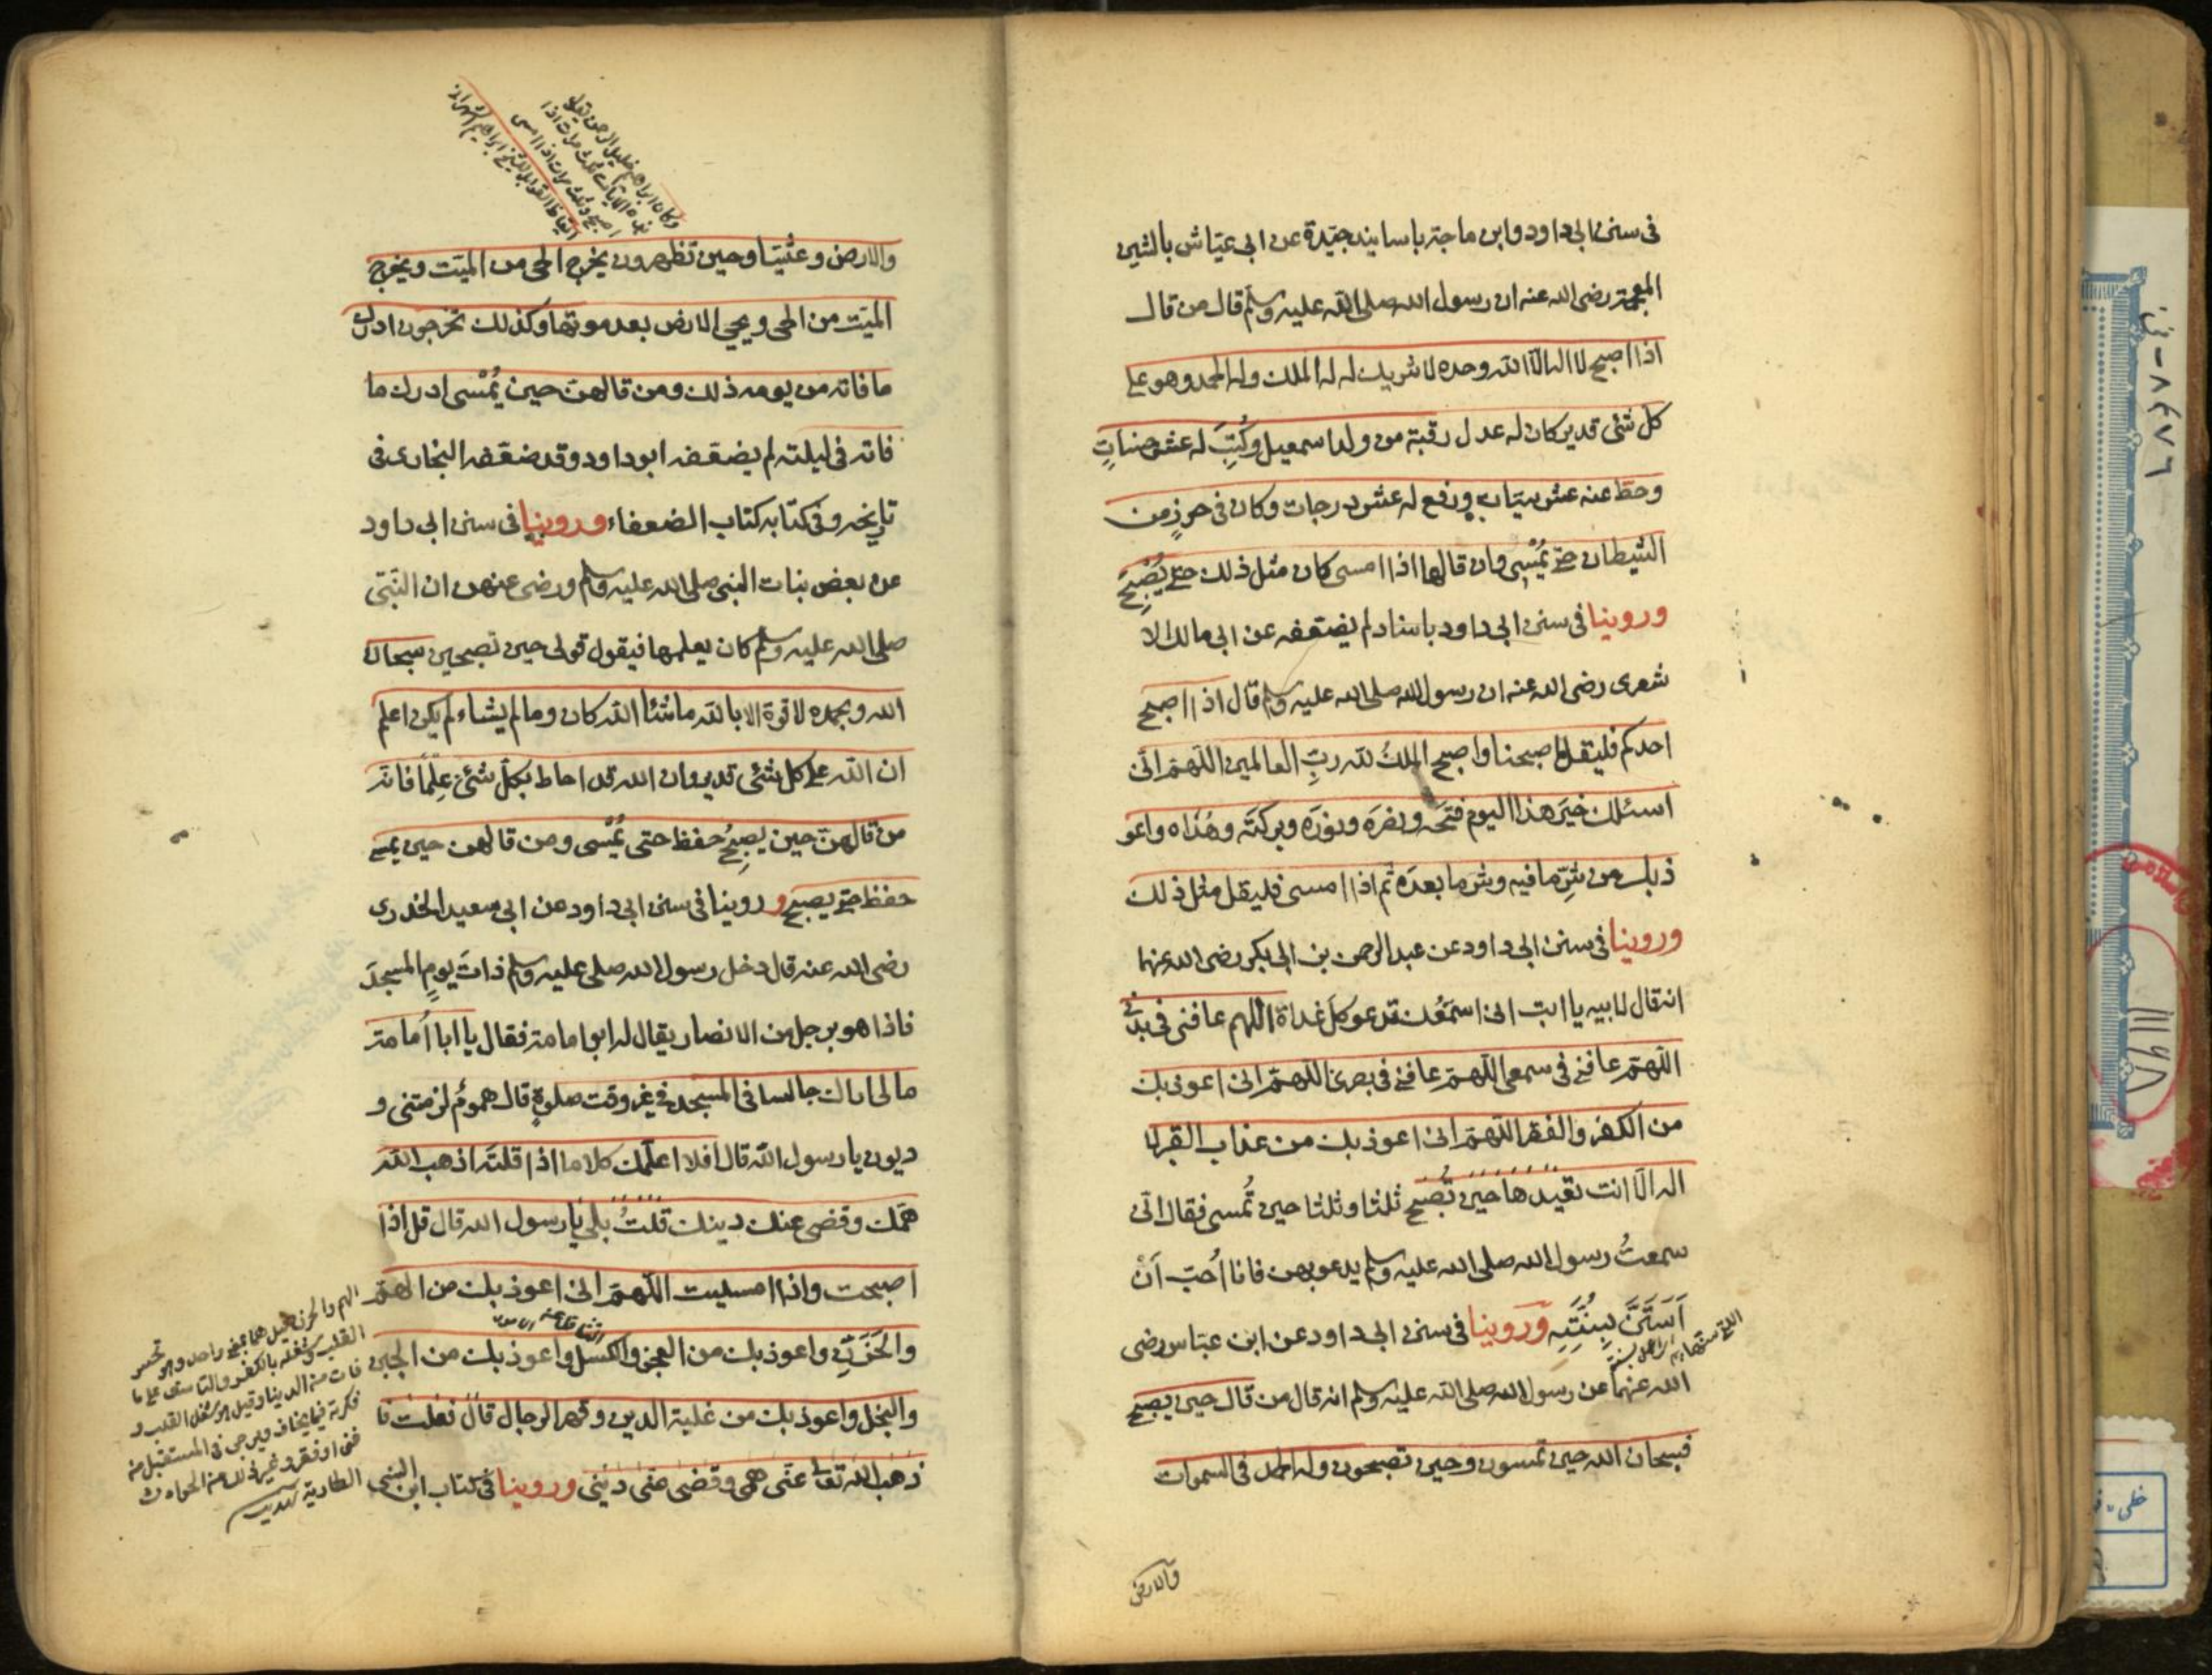 فى سنن ابى داود وابن ماجة باسانيد جيّدة عن ابى عيّاش بالشين
المعجمة رضى الله عنه ان رسول الله صلى الله عليه وسلم قال من قال
اذا اصبح لا اله الّا الله وحده لا شريك له له الملك وله الحمد وهو على
كل شئ قدير كان له عدل رقبة من ولد اسمعيل وكُتِبَ له عشر حسناتٍ
وحطّ عنه عشر سيّات ورفع له عشر درجات وكان فى حرزٍ من
الشيطان حتى يُمْسِى وان قالها اذا امسى كان مثل ذلك حتى يُصْبِحَ
وروينا فى سنن ابى داود باسناد لم يضعّفه عن ابى مالك الا
شعرى رضى الله عنه ان رسول الله صلى الله عليه وسلم قال اذا اصبح
احدكم فليقل اصبحنا واصبح الملكُ لله ربّ العالمين اللّهمّ انّى
اسئلك خيَر هذا اليوم فتحَه ونصرَه ونورَه وبركتَه وهُدَاه واعو
ذ بك من شرّ ما فيه وشر ما بعدَه ثم اذا امسى فليقل مثل ذلك
وروينا فى سنن ابى داود عن عبد الرحمن بن ابى بكر رضى الله عنهما
انه قال لابيه يا ابت انى اسمعُك تدعو كل غداة اللهم عافنى فى بدنى
اللّهمّ عافنى فى سمعى اللّهمّ عافنى فى بصرى اللهمّ انى اعوذ بك
من الكفر والفقر اللّهمّ انى اعوذ بك من عذاب القبر لا
اله الّا انت تعيدها حين تُصْبح ثلثا وثلثا حين تُمسى فقال انّى
سمعتُ رسول الله صلى الله عليه وسلم يدعو بهن فانا اُحبّ اَنْ
اَسْتَنَّ بِسُنَّتِه وروينا فى سنن ابى داود عن ابن عبّاس رضى
الله عنهما عن رسول الله صلى الله عليه وسلم انه قال من قال حين يصبح
فسبحان الله حين تمسون وحين تصبحون وله الحمد فى السموات
والارض
وكان ابراهيم خليل الرحمن يقول
هذه الايات ثلث مرات اذا
اصبح وثلث مرات اذا امسى
والارض وعشّيا وحين تظهرون يخرج الحى من الميّت ويخرج
الميّت من الحى ويحيى الارض بعد موتها وكذلك تخرجون ادرك
ما فاته من يومه ذلك ومن قالهنّ حين يُمْسى ادرك ما
فاته فى ليلته لم يضعّفه ابو داود وقد ضعّفه البخارى فى
تاريخه وفى كتابه كتاب الضعفاء وروينا فى سنن ابى داود
عن بعض بنات النبى صلى الله عليه وسلم ورضى عنهن ان النّبىّ
صلى الله عليه وسلم كان يعلمها فيقول قولى حين تصبحين سبحان
الله وبحمده لا قوة الا بالله ما شاء الله كان وما لم يشاء لم يكن اعلم
ان الله على كل شئ قدير وان الله قد احاط بكلّ شئ علِمًا فانّه
من قالهنّ حين يصبِحُ حفظ حتى يُمْسى ومن قالهن حين يمسى
حفظ حتى يصبح وروينا فى سنن ابى داود عن ابى سعيد الخدرى
رضى الله عنه قال دخل رسول الله صلى عليه وسلم ذاتَ يومٍ المسجدَ
فاذا هو برجل من الانصار يقال له ابو امامة فقال يا ابا اُمامة
مالى اراك جالسا فى المسجد فى غير وقت صلوةٍ قال هُمومٌ لزمتنى و
ديون يا رسول الله قال افلا اعلّمك كلاما اذا قلتَه اذهب الله
همّك وقضى عنك دينك قلتُ بلى يا رسول الله قال قل اذا
اصبحت واذا امسيت اللّهمّ انى اعوذ بك من الهمّ
والحَزَنِ واعوذ بك من العجز والكسل واعوذ بك من الجبن
والبخل واعوذ بك من غلبة الدين وقهر الرجال قال فعلت فا
ذهب الله تعالى عنّى همى وقضى عنى دَينى وروينا فى كتاب ابن السنى
الهم والحزن قيل هما بمعنى واحد وهو تحسر
القلب وشغله بالفكر والتاسف على ما
فات من الدنيا وقيل الهم شغل القلب و
فكرته فيما يخاف ويرجى فى المستقبل من
غنى او فقر وغير ذلك من الحوادث
الطارية